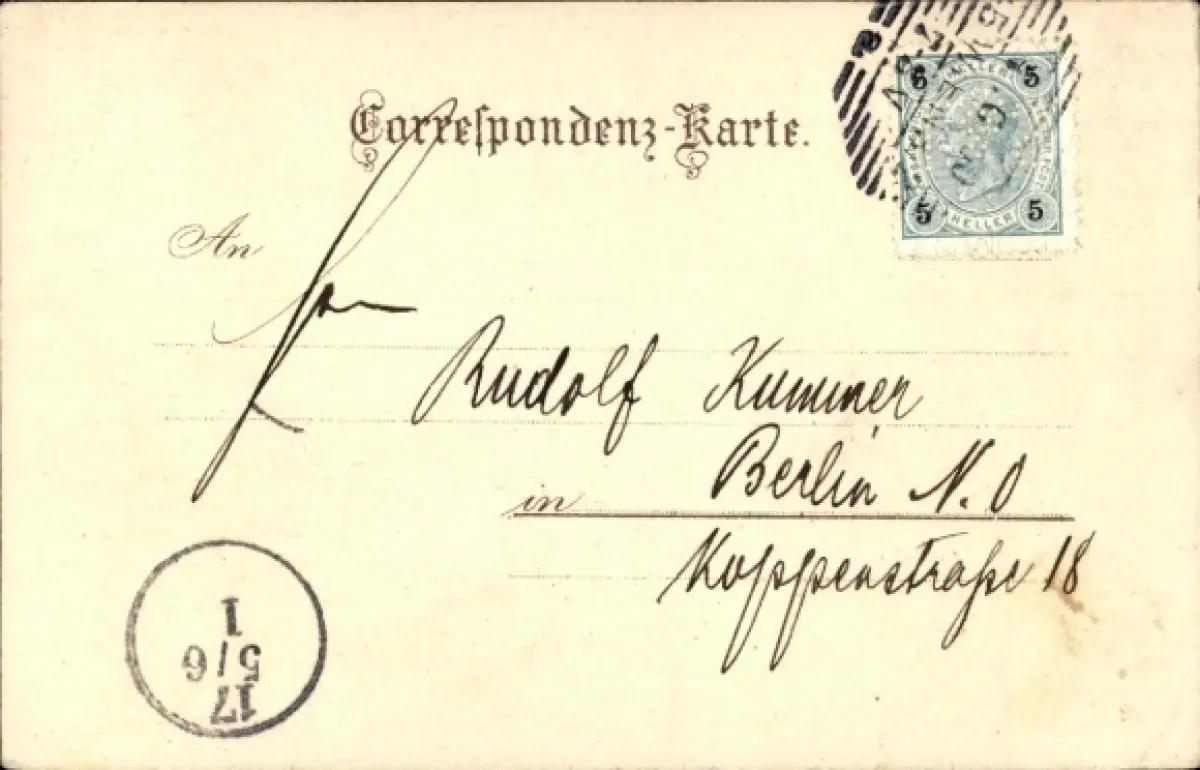 Correspondenz-Karte.
5 5
5 5
HELLER
An
Herrn
Rudolf Kummer
Berlin N.O
in
Koppenstraße 18
17
5/6
1